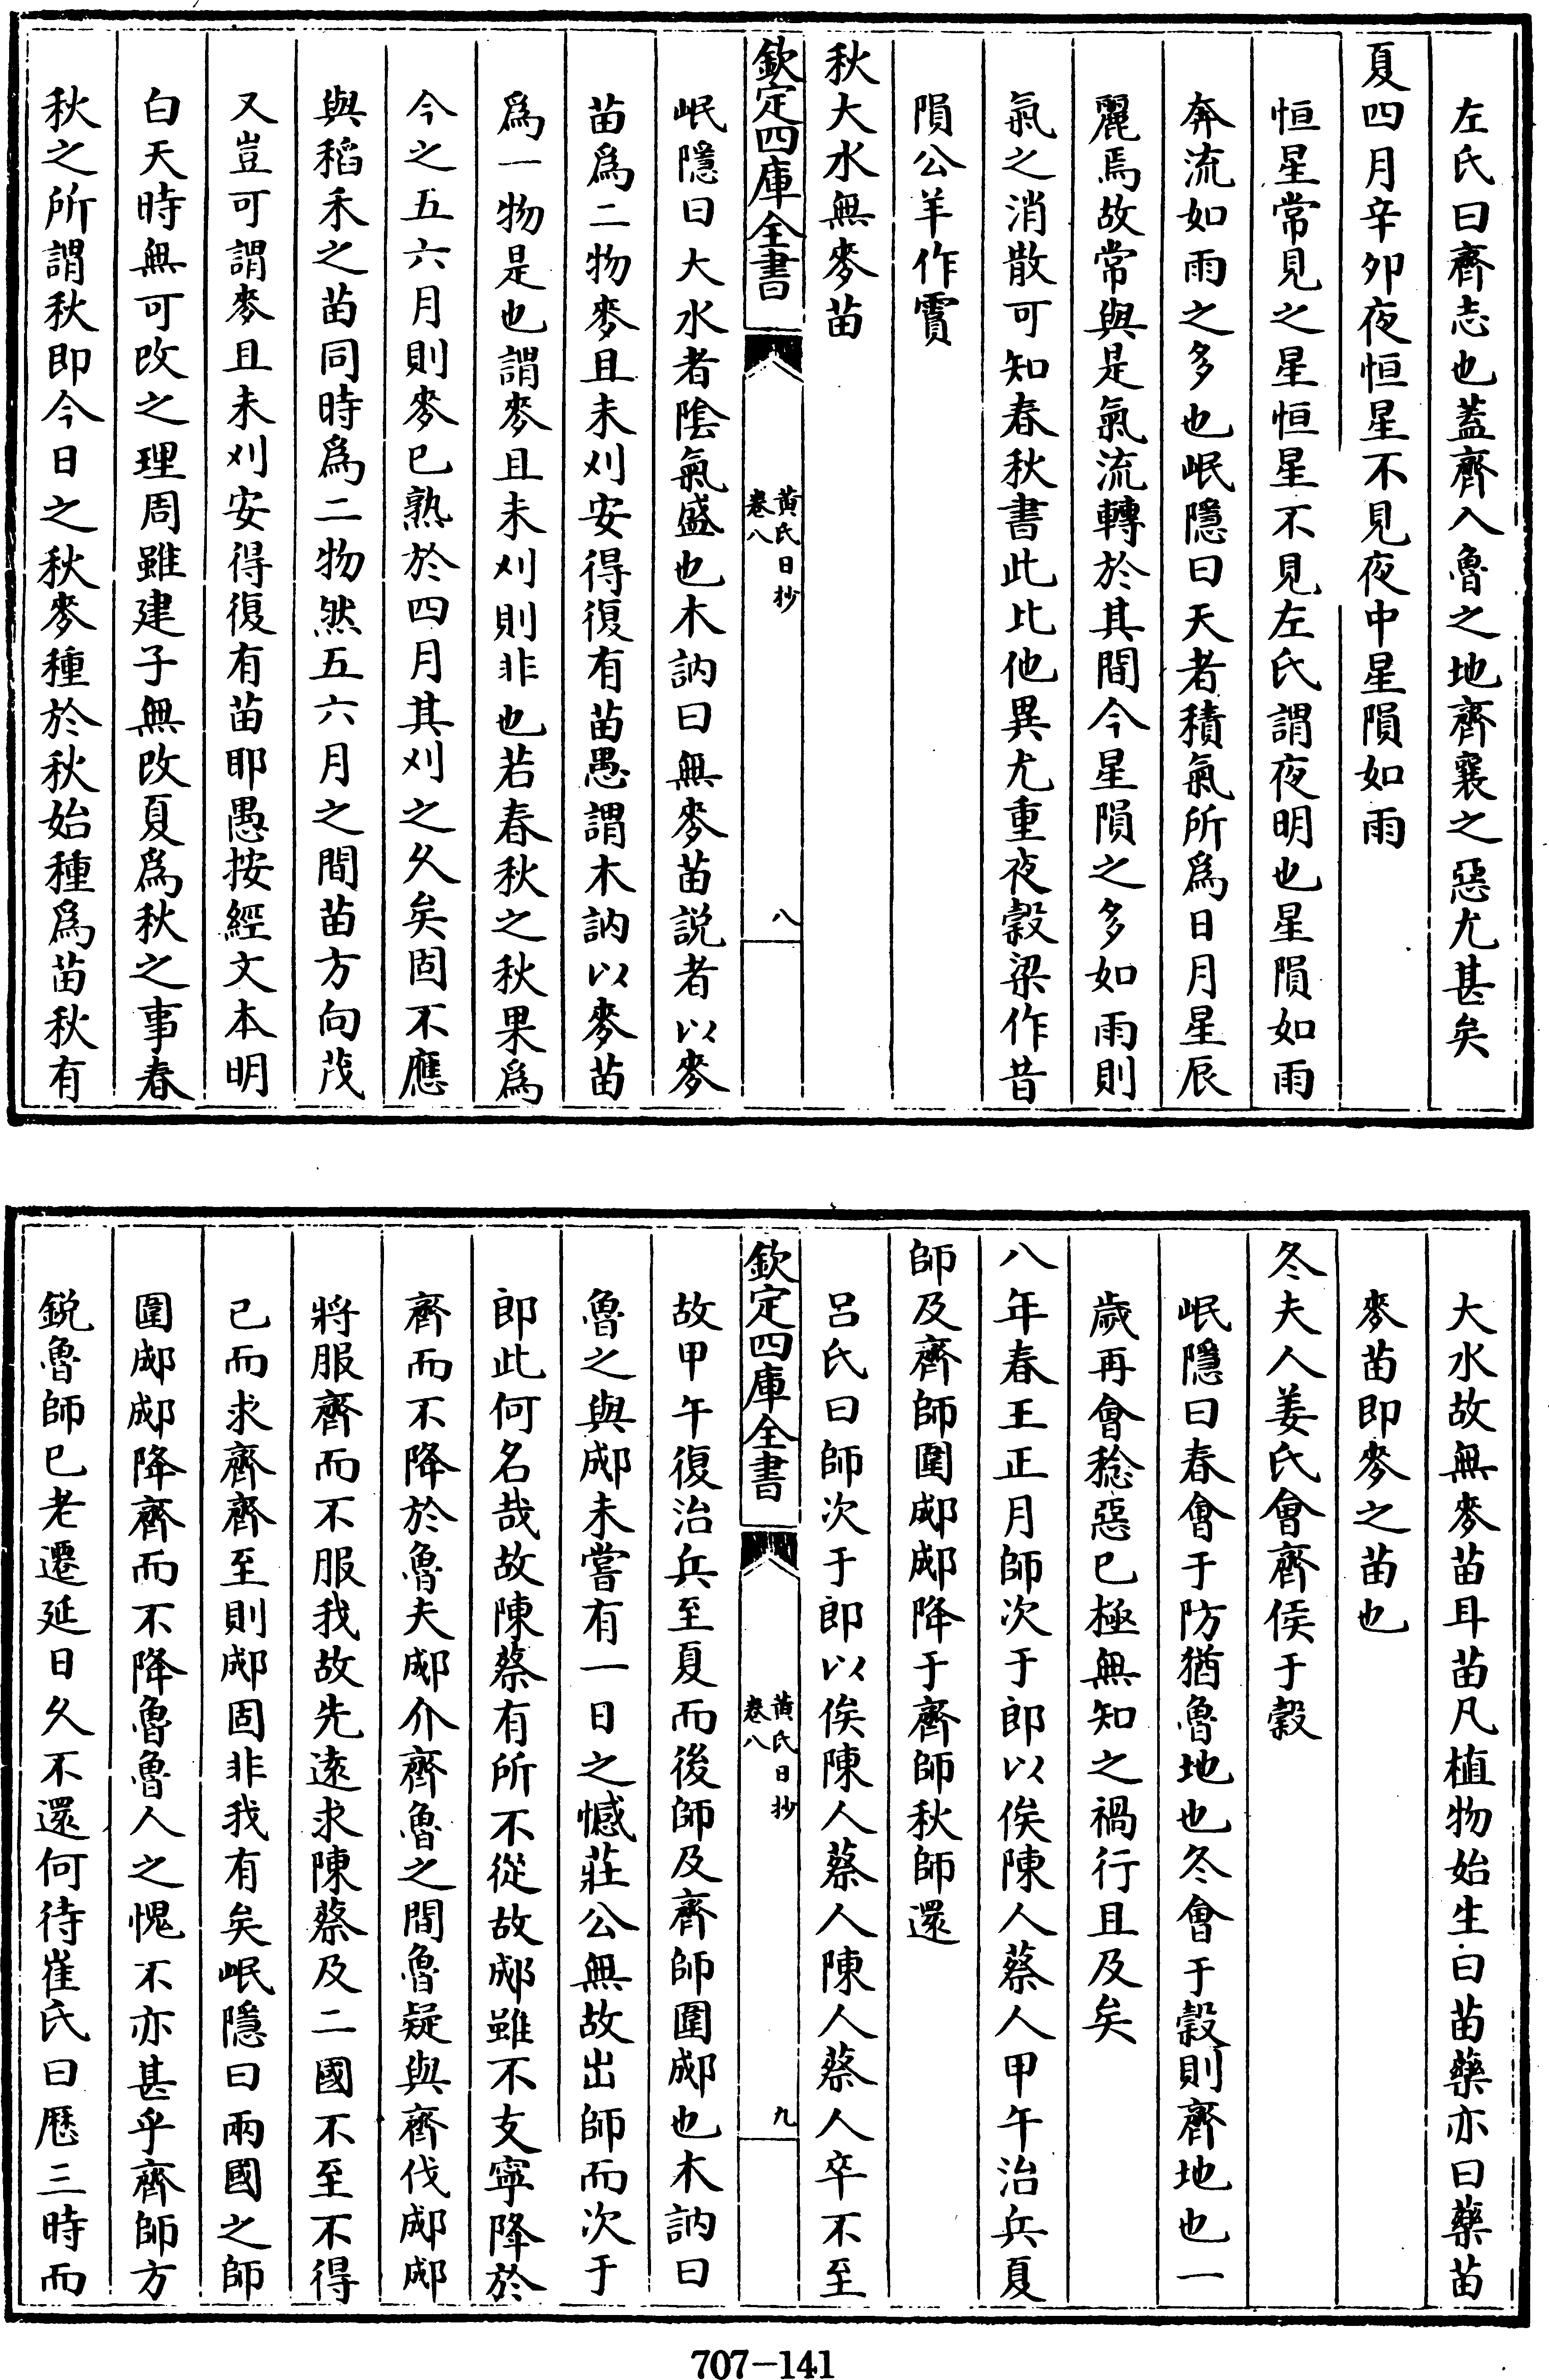 左氏曰齊志也蓋齊入魯之地齊襄之惡尤甚矣
夏四月辛夘夜恒星不見夜中星隕如雨
恒星常見之星恒星不見左氏謂夜明也星隕如雨
奔流如雨之多也岷隱曰天者積氣所為日月星辰
麗焉故常與是氣流轉於其間今星隕之多如雨則
氣之消散可知春秋書此比他異尤重夜穀梁作昔
隕公羊作霣
秋大水無麥苗
欽定四庫全書
黃氏日抄
卷八
八
岷隱曰大水者陰氣盛也木訥曰無麥苗説者以麥
苗為二物麥且未刈安得復有苗愚謂木訥以麥苗
為一物是也謂麥且未刈則非也若春秋之秋果為
今之五六月則麥已熟於四月其刈之久矣固不應
與稻禾之苗同時為二物然五六月之間苗方向茂
又豈可謂麥且未刈安得復有苗耶愚按經文本明
白天時無可改之理周雖建子無改夏為秋之事春
秋之所謂秋即今日之秋麥種於秋始種為苗秋有
大水故無麥苗耳苗凡植物始生曰苗藥亦曰藥苗
麥苗即麥之苗也
冬夫人姜氏會齊侯于穀
岷隱曰春會于防猶魯地也冬會于穀則齊地也一
歲再會稔惡已極無知之禍行且及矣
八年春王正月師次于郎以俟陳人蔡人甲午治兵夏
師及齊師圍郕郕降于齊師秋師還
呂氏曰師次于郎以俟陳人蔡人陳人蔡人卒不至
欽定四庫全書
黃氏日抄
卷八
九
故甲午復治兵至夏而後師及齊師圍郕也木訥曰
魯之與郕未嘗有一日之憾莊公無故出師而次于
郎此何名哉故陳蔡有所不從故郕雖不支寧降於
齊而不降於魯夫郕介齊魯之間魯疑與齊伐郕郕
將服齊而不服我故先遠求陳蔡及二國不至不得
已而求齊齊至則郕固非我有矣岷隱曰兩國之師
圍郕郕降齊而不降魯魯人之愧不亦甚乎齊師方
銳魯師已老遷延日久不還何待崔氏曰厯三時而
707-141